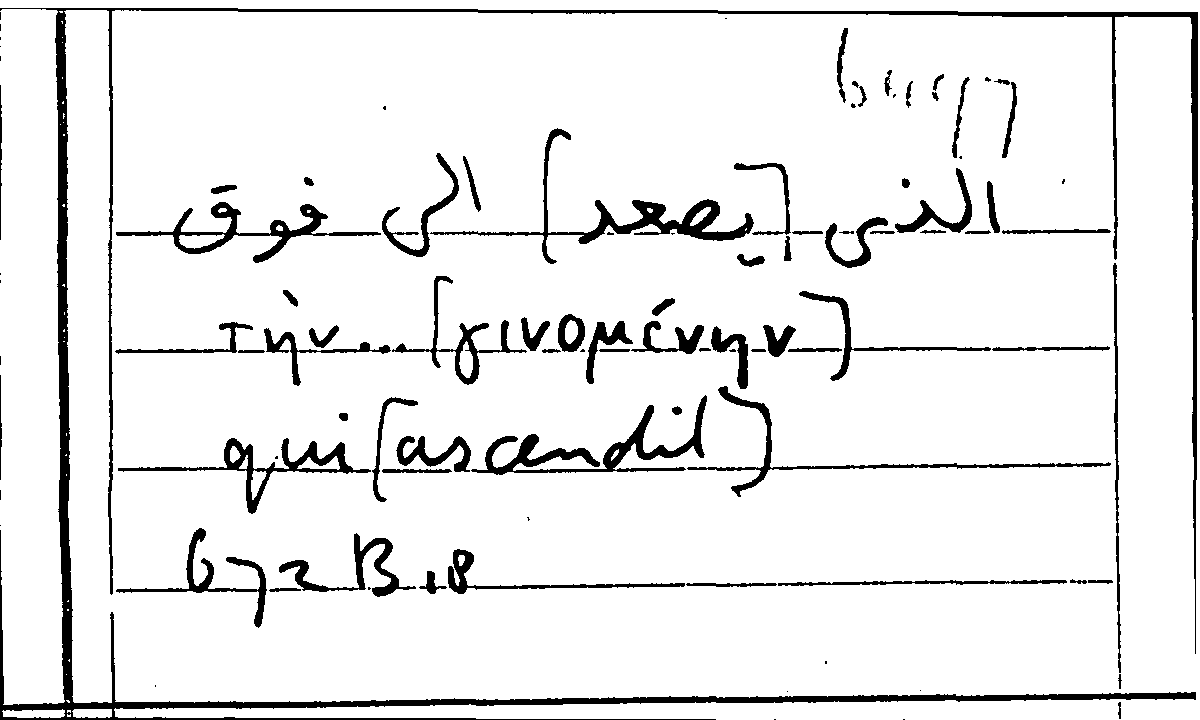 الذى [يصعد] الى فوق
τὴν... [γινομένην]
qui [ascendit]
672 B 18